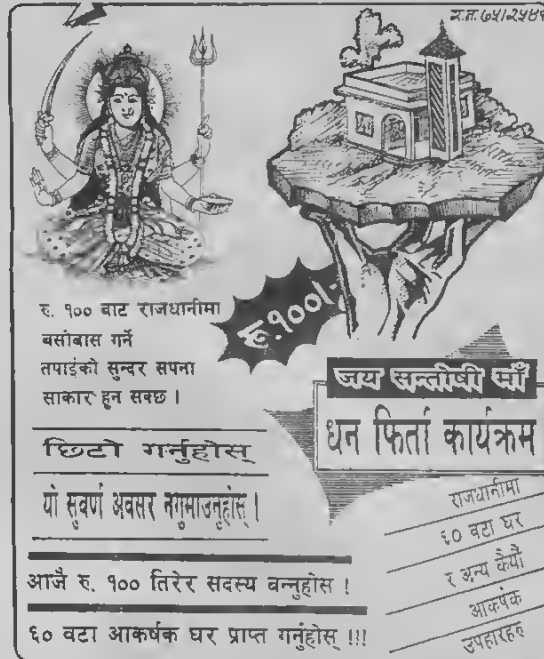 रु. १०० बाट राजधानीमा
बसोबास गर्ने
तपाईंको सुन्दर सपना
साकार हुन सक्छ ।
रू.१००/-
जय सन्तोषी माँ
धन फिर्ता कार्यक्रम
छिटो गर्नुहोस्
यो सुवर्ण अवसर नगुमाउनुहोस् ।
राजधानीमा
६० वटा घर
र अन्य कैयौं
आकर्षक
उपहारहरु
आजै रु. १०० तिरेर सदस्य बन्नुहोस !
६० वटा आकर्षक घर प्राप्त गर्नुहोस् !!!